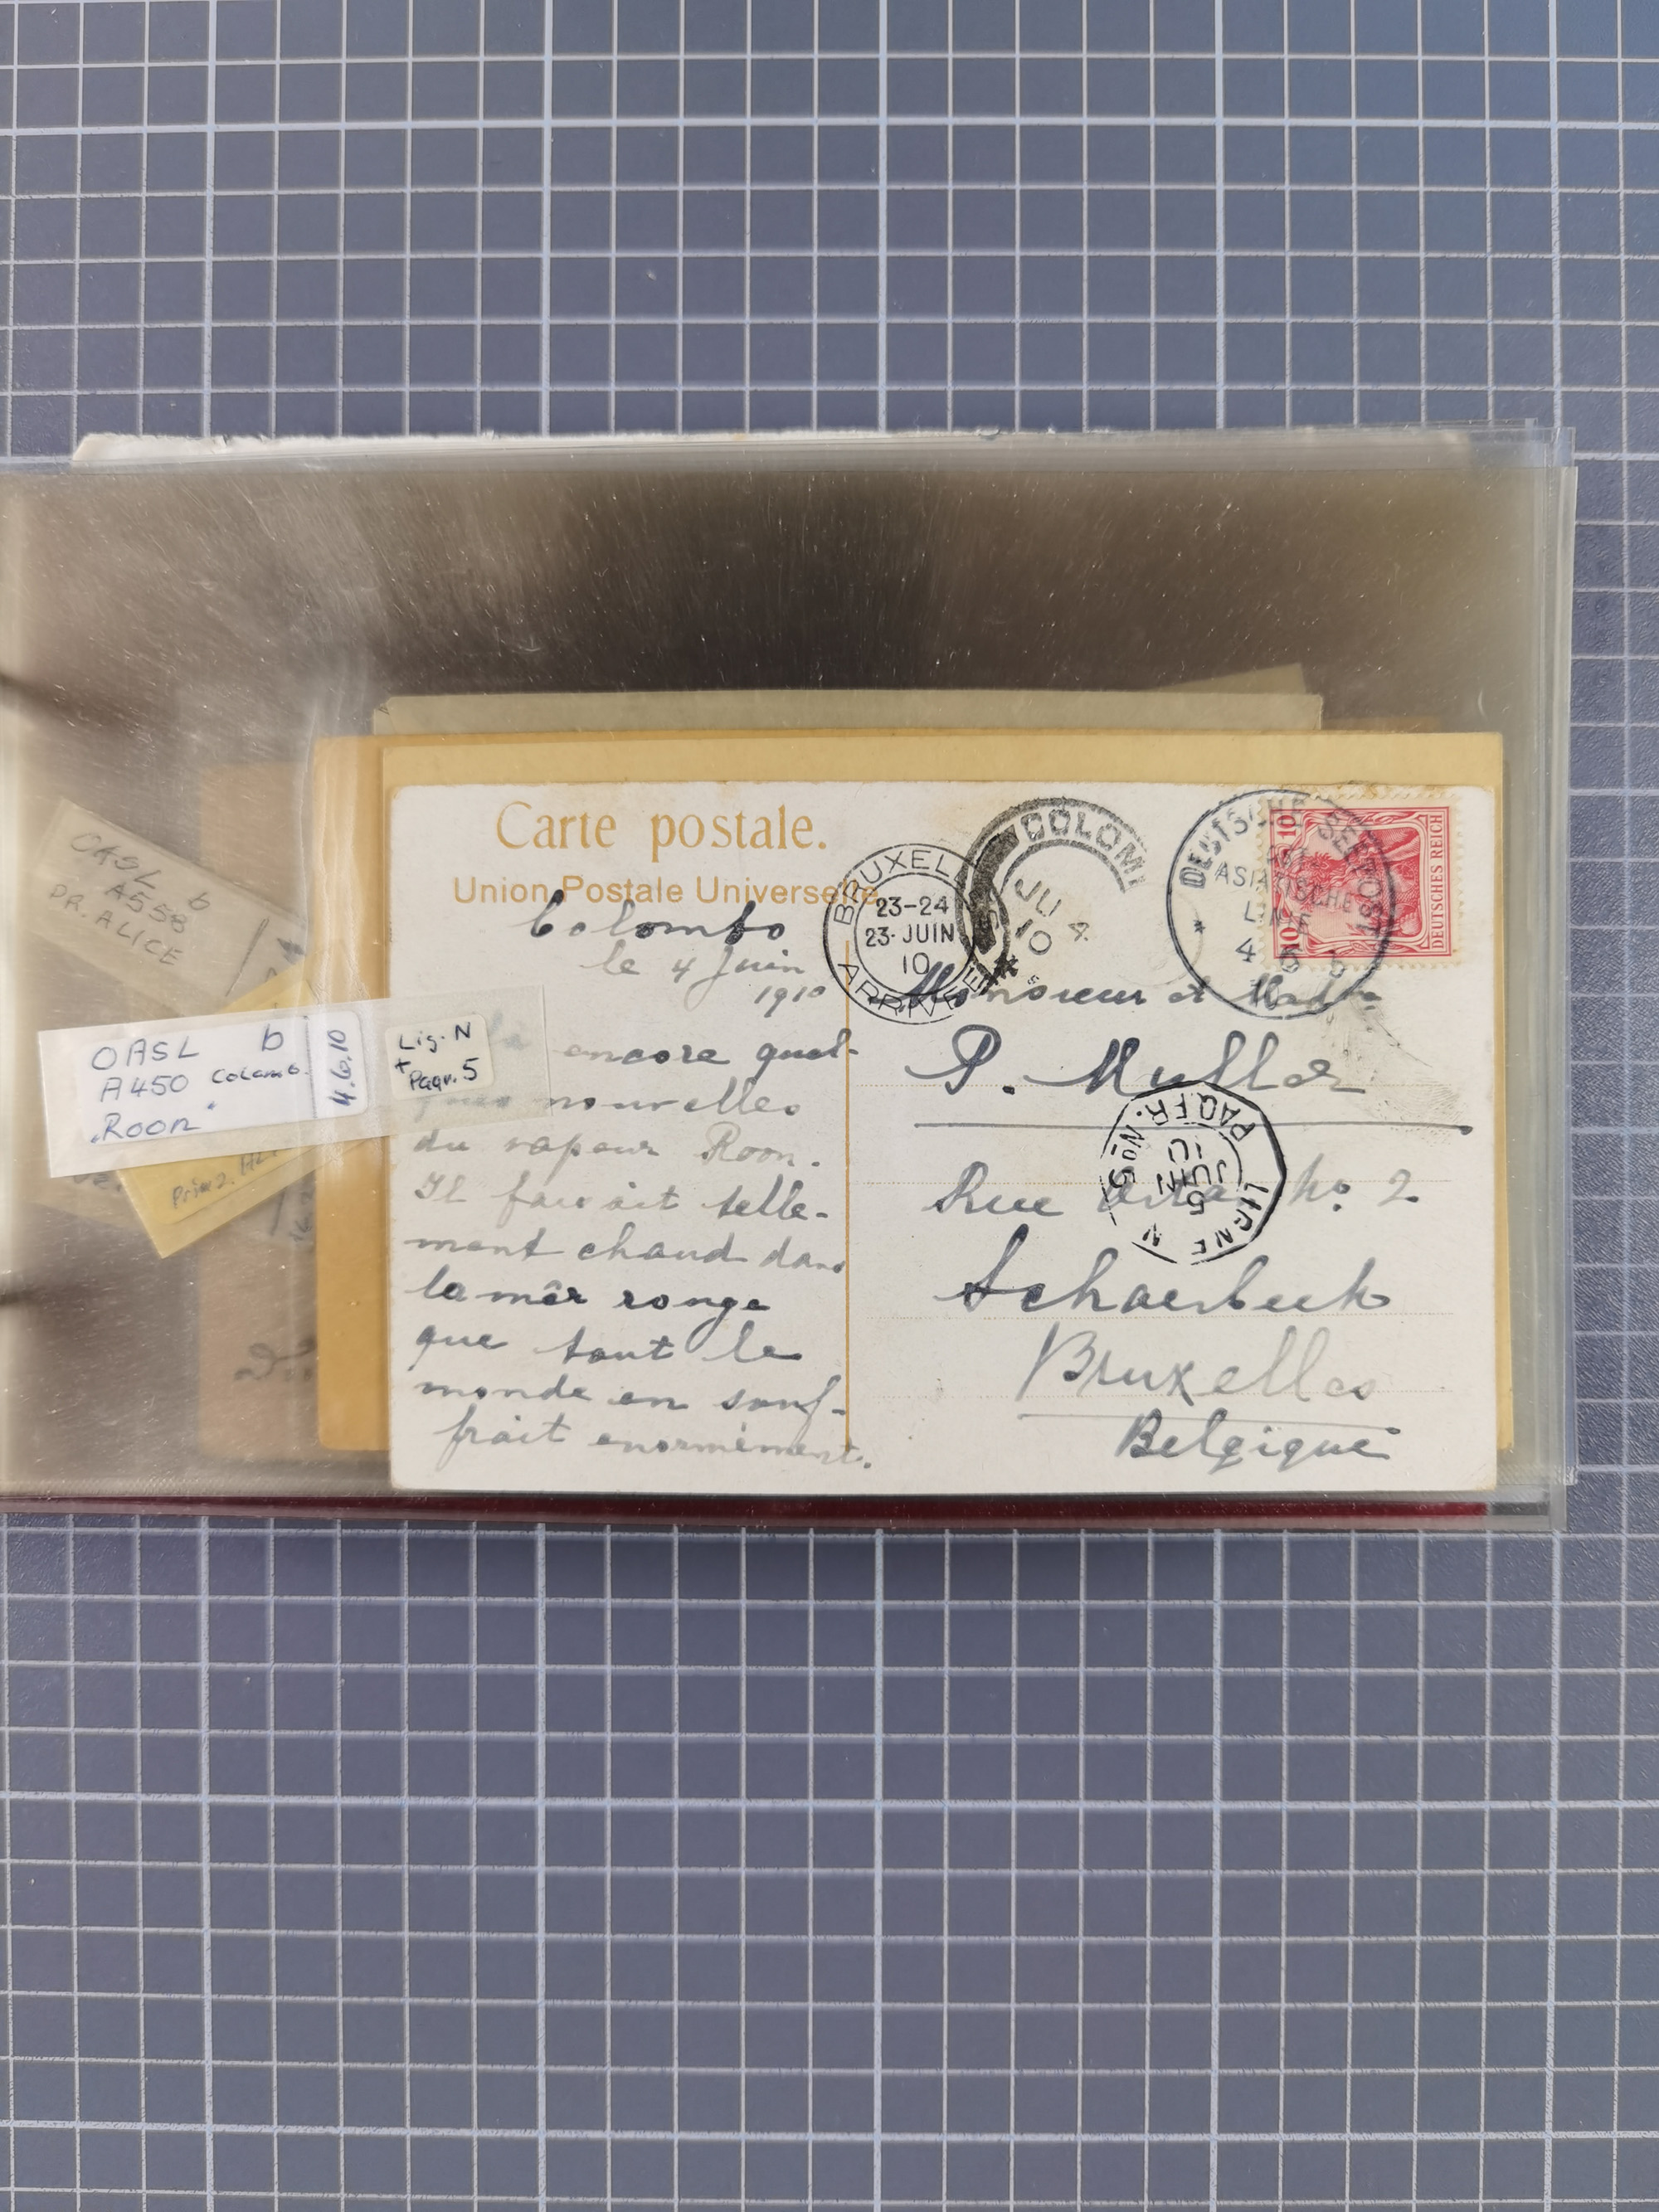 Carte postale.
Union Postale Universelle
Colombo
le 4 Juin
1910
encore quel-
ques nouvelles
du vapeur Roon.
Il faisait telle-
ment chaud dans
la mêr rouge
que tout le
monde en souf-
frait enormèment.
BRUXELLES
23-24
23·JUIN
10
ARRIVÉE
COLOM
JU 4
10
DEUTSCHE SEEPOST
OST
ASIATISCHE
LINIE
4 6
10
b
10
10
DEUTSCHES REICH
Monsieur et Madame
P. Muller
Rue No. 2
Schaerbeek
Bruxelles
Belgique
LIGNE N
PAQ.FR. No 5
5
JUIN
10
OASL b
A450 Colomb.
"Roon"
4.6.10
Lig. N
+
Paqu. 5
OASL b
A558
PR. ALICE